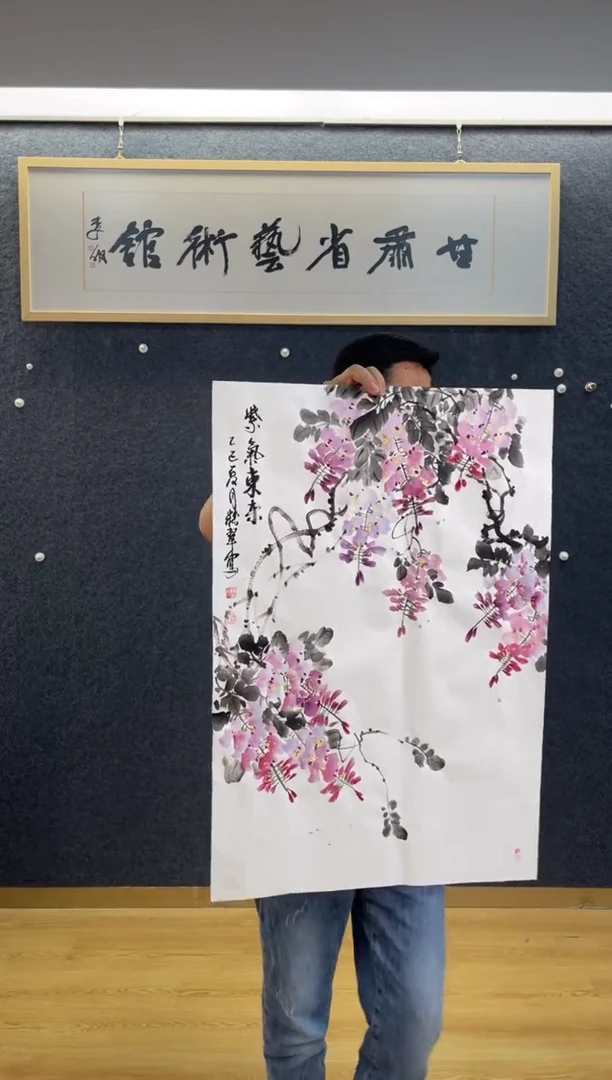 甘肅省藝術館
紫氣東来
乙巳夏月翠寫